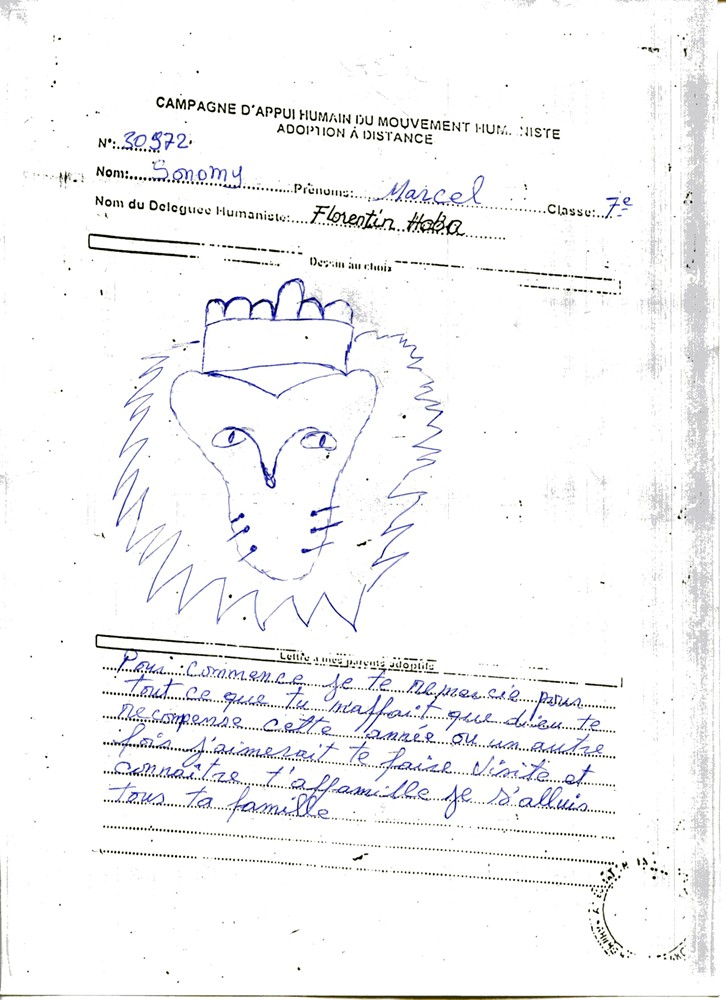 CAMPAGNE D'APPUI HUMAIN DU MOUVEMENT HUMANISTE
ADOPTION À DISTANCE
N°: 30972.
Nom: Sonomy Prénoms: Marcel Classe: 7e
Nom du Deleguée Humaniste: Florentin Haba
Dessin au choix
Lettre a mes parents adoptifs
Pour commence je te remercie pour
tout ce que tu m'affait que dieu te
recompense cette année ou un autre
fois j'aimerait te faire visite et
connaître t'affamille je s'alluis
tous ta famille